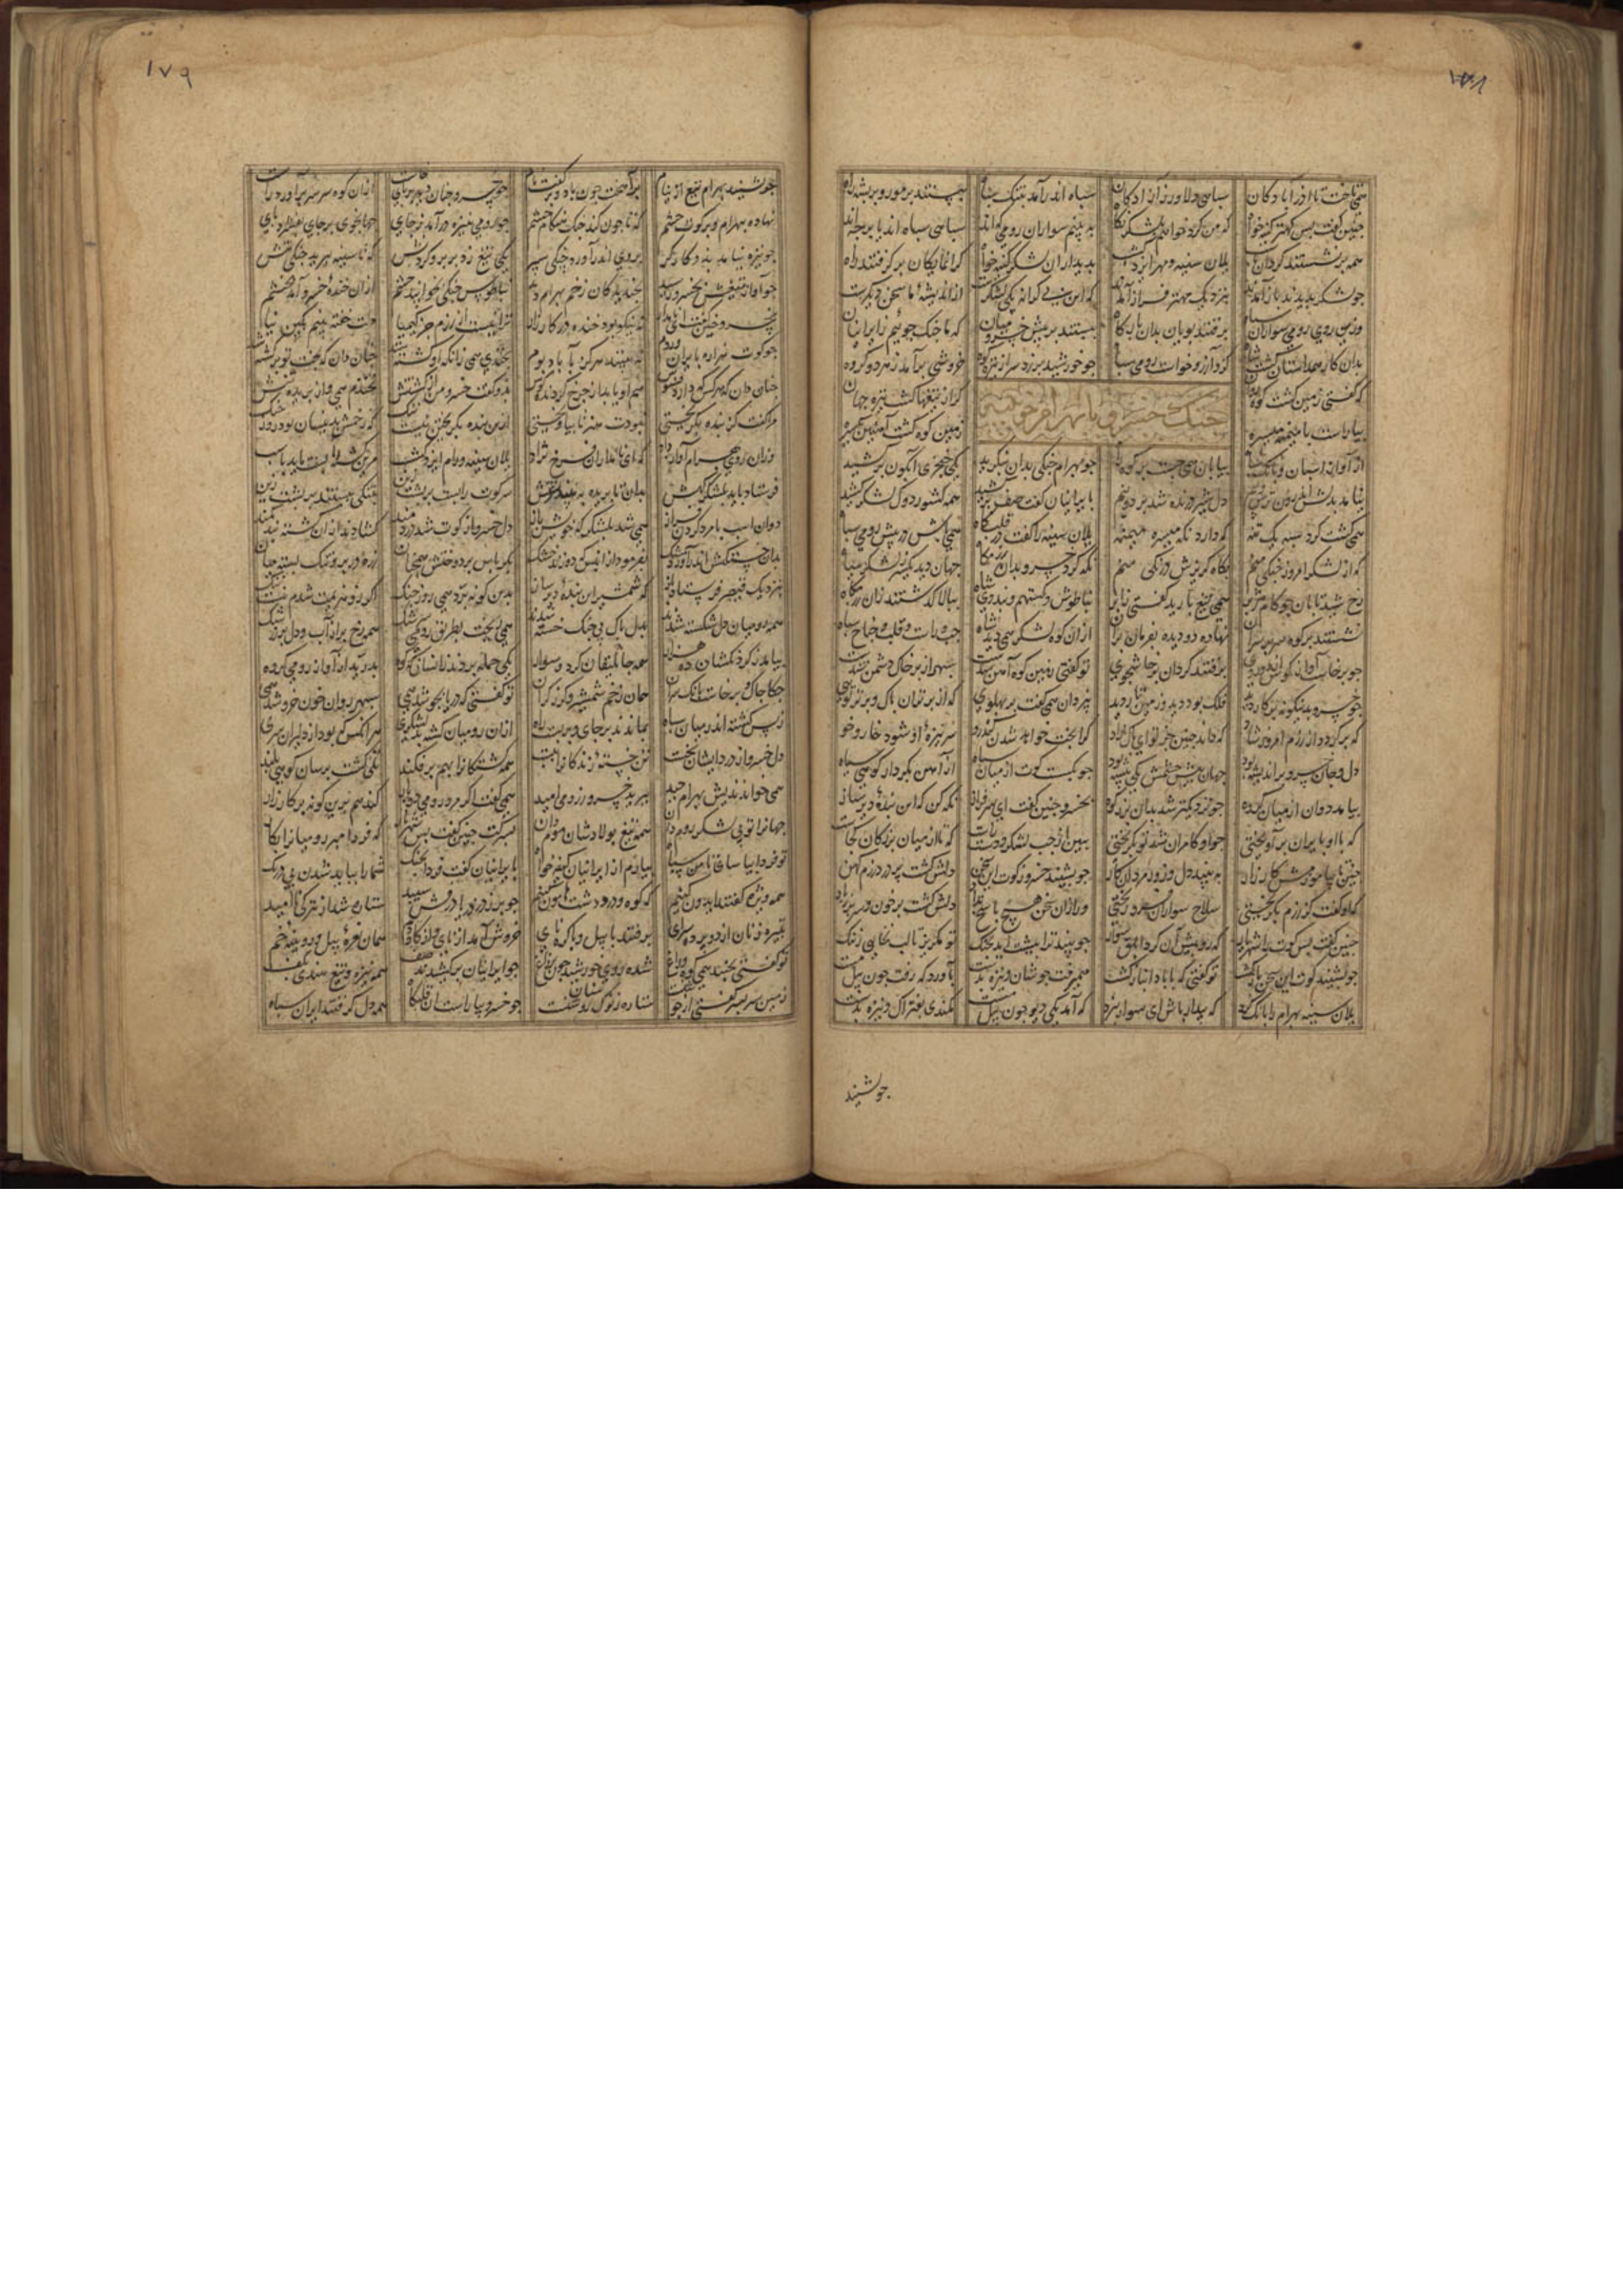 همی تاخت تا آذرآبادکان سپاهی دلاور ز آزادکان سپاه اندر آمد بتنک سپاه ببستند بر مور و بر پشه راه
چنین گفت پس مهتر کینه خواه که من کرد خواهم بلشکر نکاه ببینم سواران رومی که اند سپاهی سپاه اند یا بر چه اند
همه برنشستند کردان بر اسب یلان سینه و مهر ایزدکشسب بدیداران لشکر کینه خواه کرانمایکان برکرفتند راه
چو لشکر بدیدند باز آمدند بنزدیک مهتر فراز آمدند که این بی کرانه یکی لشکرست از اندیشه ما سخن دیکرست
وزین روی رومی سواران شاه برفتند پویان بدان بارکاه ببستند بر پیش خسرو میان که ما جنک جوئیم ز ایرانیان
بدان کار همداستان کشت شاه کزو آرزو خواست رومی سپاه چو خورشید برزد سر از تیره کوه خروشی برآمد ز هر دو کروه
که کفتی زمین کشت کوه کز از تیغها کشت تیره جهان
جنک خسرو با بهرام چوبینه
بیاراست با میمنه میسره زمین کوه کشت آهنین یکسره
از آواز اسبان و بانک سپاه بیابان همی جست بر کوه راه چو بهرام جنکی بدان بنکرید یکی خنجری آبکون برکشید
نیامد بدلش اندرون ترس و بیم دل شیر درنده شد بر دو نیم بایرانیان گفت صف برکشید همه کشور دوک لشکر کشید
همی کشت کرد سپه یک تنه که دارد نکه میسره میمنه یلان سینه را گفت در قلبکاه همی باش در پیش رومی سپاه
که از لشکر امروز جنکی منم بکاه کریزش درنکی منم نکه کرد خسرو بدان رزمکاه جهان دید یکسر ز لشکر سیاه
رخ شید تابان چو کام هژبر همی تیغ بارید کفتی ز ابر نیاطوش و کستهم و بندوی و شاه ببالا کذشتند زان رزمکاه
نشستند بر کوه سر بر سران نهاده دو دیده بفرمان بران ازان کوه لشکر همی دید شاه چپ و راست و قلب و جناح سپاه
چو برخاست آواز کوس از دو روی برفتند کردان پرخاشجوی تو کفتی زمین کوه آهن شدست سپهر از بر خاک دشمن شدست
چو خسرو بدینکونه بر کار دید فلک بود دید و زمین تار دید بیزدان همی گفت بر پهلوی که از برتران پاک و برتر توی
که برکردد از رزم امروز شاد که داند چنین جز تو ای پاک و راد کرا بخت خواهد شدن کندرو سر نیزه او شود خار و خو
دل و جان خسرو پر اندیشه بود جهان پیش چشمش یکی بیشه بود چو بکسست کوت از میان سپاه از آهن بکردار کوهی سیاه
بیامد دوان از میان کروه چو نزدیکتر شد بدان برز کوه بخسرو چنین گفت ای سرفراز نکه کن که این بنده دیوساز
که با او بایران برآویختی چو او کامران شد تو بکریختی ببین از چپ لشکر و دست راست که تا از میان بزرکان کجاست
تا بیاموزمش کارزار ببیند دل و زور مردان کار چو بشنید خسرو ز کوت این سخن دلش کشت پر درد رزم کهن
که او گفت کز رزم بکریختی سلاح سواران فرو ریختی ور ازان سخن هیچ پاسخ نداد دلش کشت پرخون و سر پر ز باد
چنین گفت پس کوت را شهریار که رو پیش آن کرد ابلق سوار چو بیند ترا پیشت آید بجنک تو مکریز تا لب نخایی ز ننک
چو بشنید کوت این سخن بازکشت تو کفتی که با باد انباز کشت همیرفت جوشان و نیزه بدست باورد که رفت چون پیل مست
یلان سینه بهرام را بانک کرد که بیدار باش ای سوار نبرد که آمد یکی دیو چون پیل مست کمندی بفتراک و نیزه بدست
چو بشنید
۱۷۹
چو بشنید بهرام تیغ از نیام برآهیخت چون باد و برگفت نام چو خسرو چنان دید بر پای خاست ازان کوه سر سر برآورد راست
نهاده ببهرام و بر کوت چشم که تا چون کند جنک هنکام خشم چو رومی بنیزه درآمد ز جای جهانجوی بر جای بفشرد پای
چو نیزه نیامد بدو کارکر بروی اندر آورد جنکی سپر یکی تیغ زد بر بر و کردنش که تا سینه ببرید جنکی تنش
چو آواز تیغش بخسرو رسید بخندید کان زخم بهرام دید نیاطوس جنکی بخوابید چشم ازان خنده خسرو آمد بخشم
بخسرو چنین گفت کای نامدار نه نیکو بود خنده در کارزار ترا نیست از رزم جز کیمیا دلت خفته بینم بکین نیا
چو کوت هزاره بایران و روم نه بینند هرکز بآباد بوم بخندی همی زانکه او کشته شد چنان دان که بخت تو برکشته شد
چنان دان که هرکس که دارد فسوس هم او یابد از چرخ کردنده کوس بدو گفت خسرو من از کشتنش نخندم همی واز بریده تنش
مرا گفت کز بنده بکریختی نبودت هنر تا بیاویختی ازان بنده بکریختن نیست ننک که زخمش بدینسان بود روز جنک
وزان روی بهرام آواز داد که ای نامداران فرخ نژاد یلان سینه و رام ایزدکشسب مرین کشته را بست باید بر اسب
فرستاد باید بلشکرکهش بدان تا بریده ببیند سر کوت را بست بر پشت زین بتنکی ببستند بر پشت زین
دوان اسب با مرد کردن فراز همی شد بلشکر که خویش باز دل خسرو از کوت شد دردمند کشادند ازان کشته بند کمند
بدان خستکیش اندرآورد مشک بفرمود بکرباس بر دوختش همچنان زره در بر و تنک بسته میان
بنزدیک قیصر فرستاد باز که شمشیر این بنده دیوساز بدین کونه برد همی روز جنک ازو کر هزیمت شدم نیست ننک
همه رومیان دل شکسته شدند بدل پاک بی جنک خسته شدند همی ریخت بطریق رومی سرشک همه رخ پر از آب و دل پر ز رشک
بیامد ز کردنکشان ده هزار همه جاثلیقان کرد و سوار یکی حمله بردند زانسان که کوه بدرید از آواز رومی کروه
چکاچاک برخاست و بانک سران همان زخم شمشیر و کرز کران تو کفتی که دریا بجوشد همی سپهر روان خون خروشد همی
ز بس کشته اندر میان سپاه بماندند بر جای و بربست راه ازان رومیان کشته شد لشکری هرآنکس که بود از دلیران سری
دل خسرو از درد ایشان بخست تن خسته زندکان را ببست همه کشتکان را بهم برفکند تلی کشت برسان کوهی بلند
همی خواندندیش بهرام چید ببرید خسرو ز رومی امید همی گفت اکر مرد رومی دوبار کند هم برین کونه بر کارزار
جهانرا تو بی لشکر روم دان همه تیغ پولادشان موم دان بسرکس چنین گفت پس شهریار که فردا مبر رومیان را بکار
تو فردا بیاسای تا من سپاه بیارم از ایرانیان کینه خواه بایرانیان گفت فردا بجنک شما را بباید شدن بی درنک
همه ویژه کفتند ایدون کنیم که کوه و در و دشت هامون کنیم چو برزد ز دریا درفش سپید ستاره شد از تیرکی ناامید
تبیره زنان از دو پرده سرای برفتند با پیل و با کره نای خروش آمد از نای و از کاودم همان نعره پیل و رویینه خم
تو کفتی بجنبد همی کوه و راغ شده روی خورشید چون پر زاغ چو ایرانیان برکشیدند صف همه نیزه و تیغ هندی بکف
زمین سربسر کفتی از جوشنست ستاره ز نوک سنان روشنست چو خسرو بیاراست آن قلبکاه همه دل کرفتند ایران سپاه